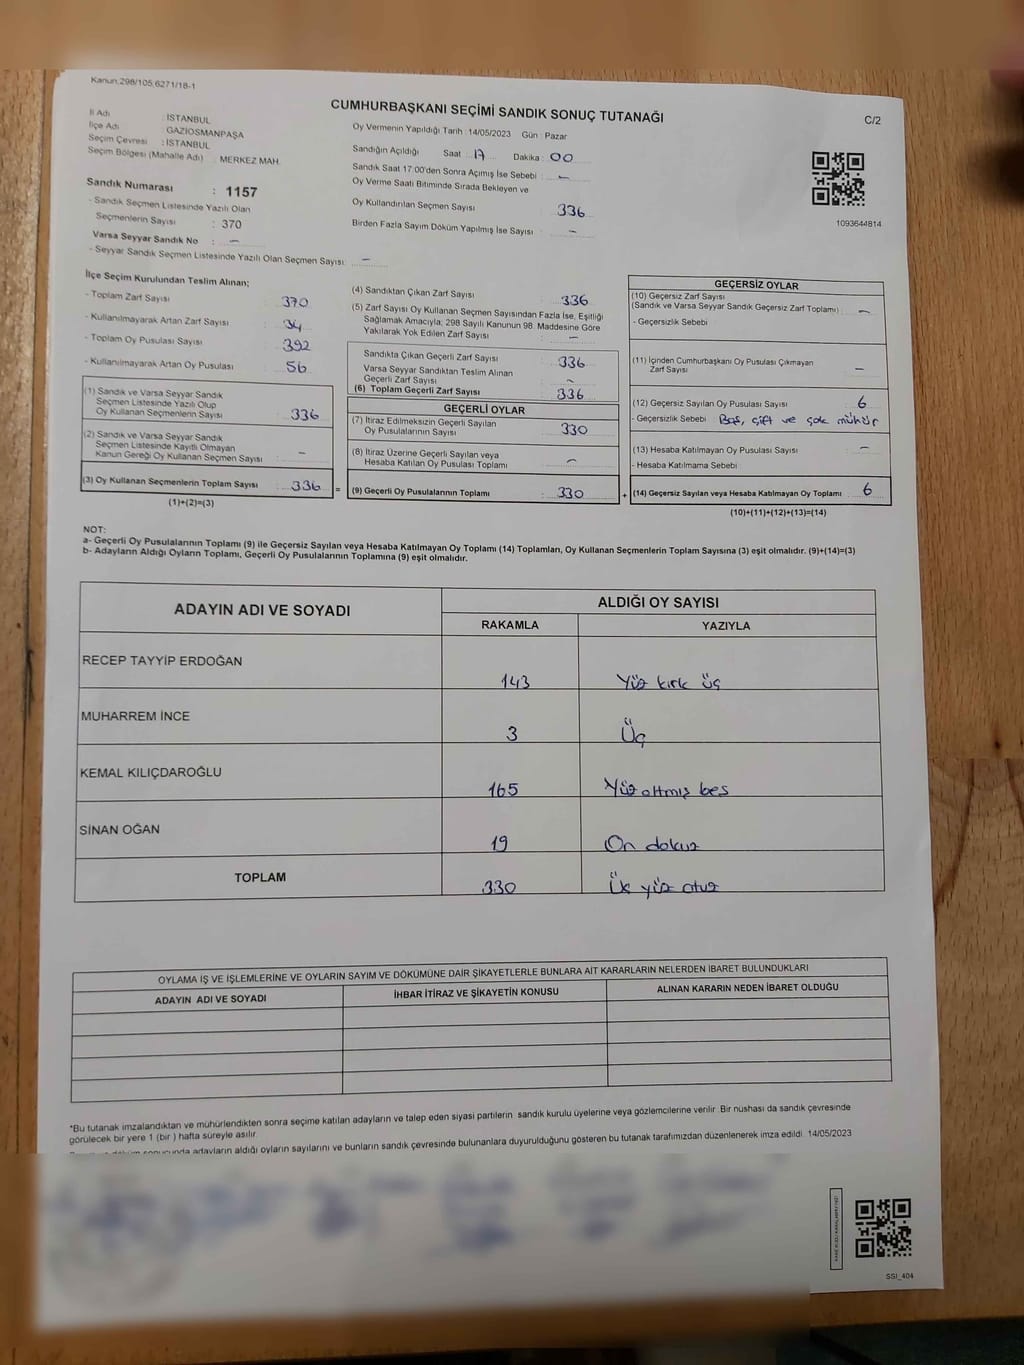 Kanun.298/105,6271/18-1
CUMHURBAŞKANI SEÇİMİ SANDIK SONUÇ TUTANAĞI
C/2
İl Adı : İSTANBUL
İlçe Adı : GAZİOSMANPAŞA
Seçim Çevresi : İSTANBUL
Seçim Bölgesi (Mahalle Adı) : MERKEZ MAH.
Sandık Numarası : 1157
- Sandık Seçmen Listesinde Yazılı Olan
Seçmenlerin Sayısı : 370
Varsa Seyyar Sandık No : -
- Seyyar Sandık Seçmen Listesinde Yazılı Olan Seçmen Sayısı: -
Oy Vermenin Yapıldığı Tarih : 14/05/2023 Gün : Pazar
Sandığın Açıldığı Saat : 17 Dakika : 00
Sandık Saat 17.00'den Sonra Açımış İse Sebebi : -
Oy Verme Saati Bitiminde Sırada Bekleyen ve
Oy Kullandırılan Seçmen Sayısı : 336
Birden Fazla Sayım Döküm Yapılmış İse Sayısı : -
1093644814
İlçe Seçim Kurulundan Teslim Alınan;
- Toplam Zarf Sayısı : 370
- Kullanılmayarak Artan Zarf Sayısı : 34
- Toplam Oy Pusulası Sayısı : 392
- Kullanılmayarak Artan Oy Pusulası : 56
(1) Sandık ve Varsa Seyyar Sandık
Seçmen Listesinde Yazılı Olup
Oy Kullanan Seçmenlerin Sayısı : 336
(2) Sandık ve Varsa Seyyar Sandık
Seçmen Listesinde Kayıtlı Olmayan
Kanun Gereği Oy Kullanan Seçmen Sayısı : -
(3) Oy Kullanan Seçmenlerin Toplam Sayısı : 336 =
(1)+(2)=(3)
(4) Sandıktan Çıkan Zarf Sayısı : 336
(5) Zarf Sayısı Oy Kullanan Seçmen Sayısından Fazla İse, Eşitliği
Sağlamak Amacıyla; 298 Sayılı Kanunun 98. Maddesine Göre
Yakılarak Yok Edilen Zarf Sayısı : -
Sandıkta Çıkan Geçerli Zarf Sayısı : 336
Varsa Seyyar Sandıktan Teslim Alınan
Geçerli Zarf Sayısı : -
(6) Toplam Geçerli Zarf Sayısı : 336
GEÇERLİ OYLAR
(7) İtiraz Edilmeksizin Geçerli Sayılan
Oy Pusulalarının Sayısı : 330
(8) İtiraz Üzerine Geçerli Sayılan veya
Hesaba Katılan Oy Pusulası Toplamı : -
(9) Geçerli Oy Pusulalarının Toplamı : 330 +
GEÇERSİZ OYLAR
(10) Geçersiz Zarf Sayısı
(Sandık ve Varsa Seyyar Sandık Geçersiz Zarf Toplamı) : -
- Geçersizlik Sebebi
(11) İçinden Cumhurbaşkanı Oy Pusulası Çıkmayan
Zarf Sayısı : -
(12) Geçersiz Sayılan Oy Pusulası Sayısı : 6
- Geçersizlik Sebebi : Boş, çift ve çok mühür
(13) Hesaba Katılmayan Oy Pusulası Sayısı : -
- Hesaba Katılmama Sebebi
(14) Geçersiz Sayılan veya Hesaba Katılmayan Oy Toplamı : 6
(10)+(11)+(12)+(13)=(14)
NOT:
a- Geçerli Oy Pusulalarının Toplamı (9) ile Geçersiz Sayılan veya Hesaba Katılmayan Oy Toplamı (14) Toplamları, Oy Kullanan Seçmenlerin Toplam Sayısına (3) eşit olmalıdır. (9)+(14)=(3)
b- Adayların Aldığı Oyların Toplamı, Geçerli Oy Pusulalarının Toplamına (9) eşit olmalıdır.
ADAYIN ADI VE SOYADI
ALDIĞI OY SAYISI
RAKAMLA YAZIYLA
RECEP TAYYİP ERDOĞAN 143 Yüz kırk üç
MUHARREM İNCE 3 Üç
KEMAL KILIÇDAROĞLU 165 Yüz altmış beş
SİNAN OĞAN 19 On dokuz
TOPLAM 330 Üç yüz otuz
OYLAMA İŞ VE İŞLEMLERİNE VE OYLARIN SAYIM VE DÖKÜMÜNE DAİR ŞİKAYETLERLE BUNLARA AİT KARARLARIN NELERDEN İBARET BULUNDUKLARI
ADAYIN ADI VE SOYADI İHBAR İTİRAZ VE ŞİKAYETİN KONUSU ALINAN KARARIN NEDEN İBARET OLDUĞU
*Bu tutanak imzalandıktan ve mühürlendikten sonra seçime katılan adayların ve talep eden siyasi partilerin sandık kurulu üyelerine veya gözlemcilerine verilir. Bir nushası da sandık çevresinde
görülecek bir yere 1 (bir ) hafta süreyle asılır.
sonucunda adayların aldığı oyların sayılarını ve bunların sandık çevresinde bulunanlara duyurulduğunu gösteren bu tutanak tarafımızdan düzenlenerek imza edildi. 14/05/2023
SSI_404